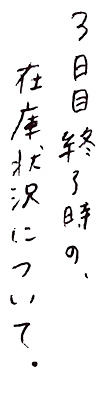 3日目終了時の、
在庫状況について.